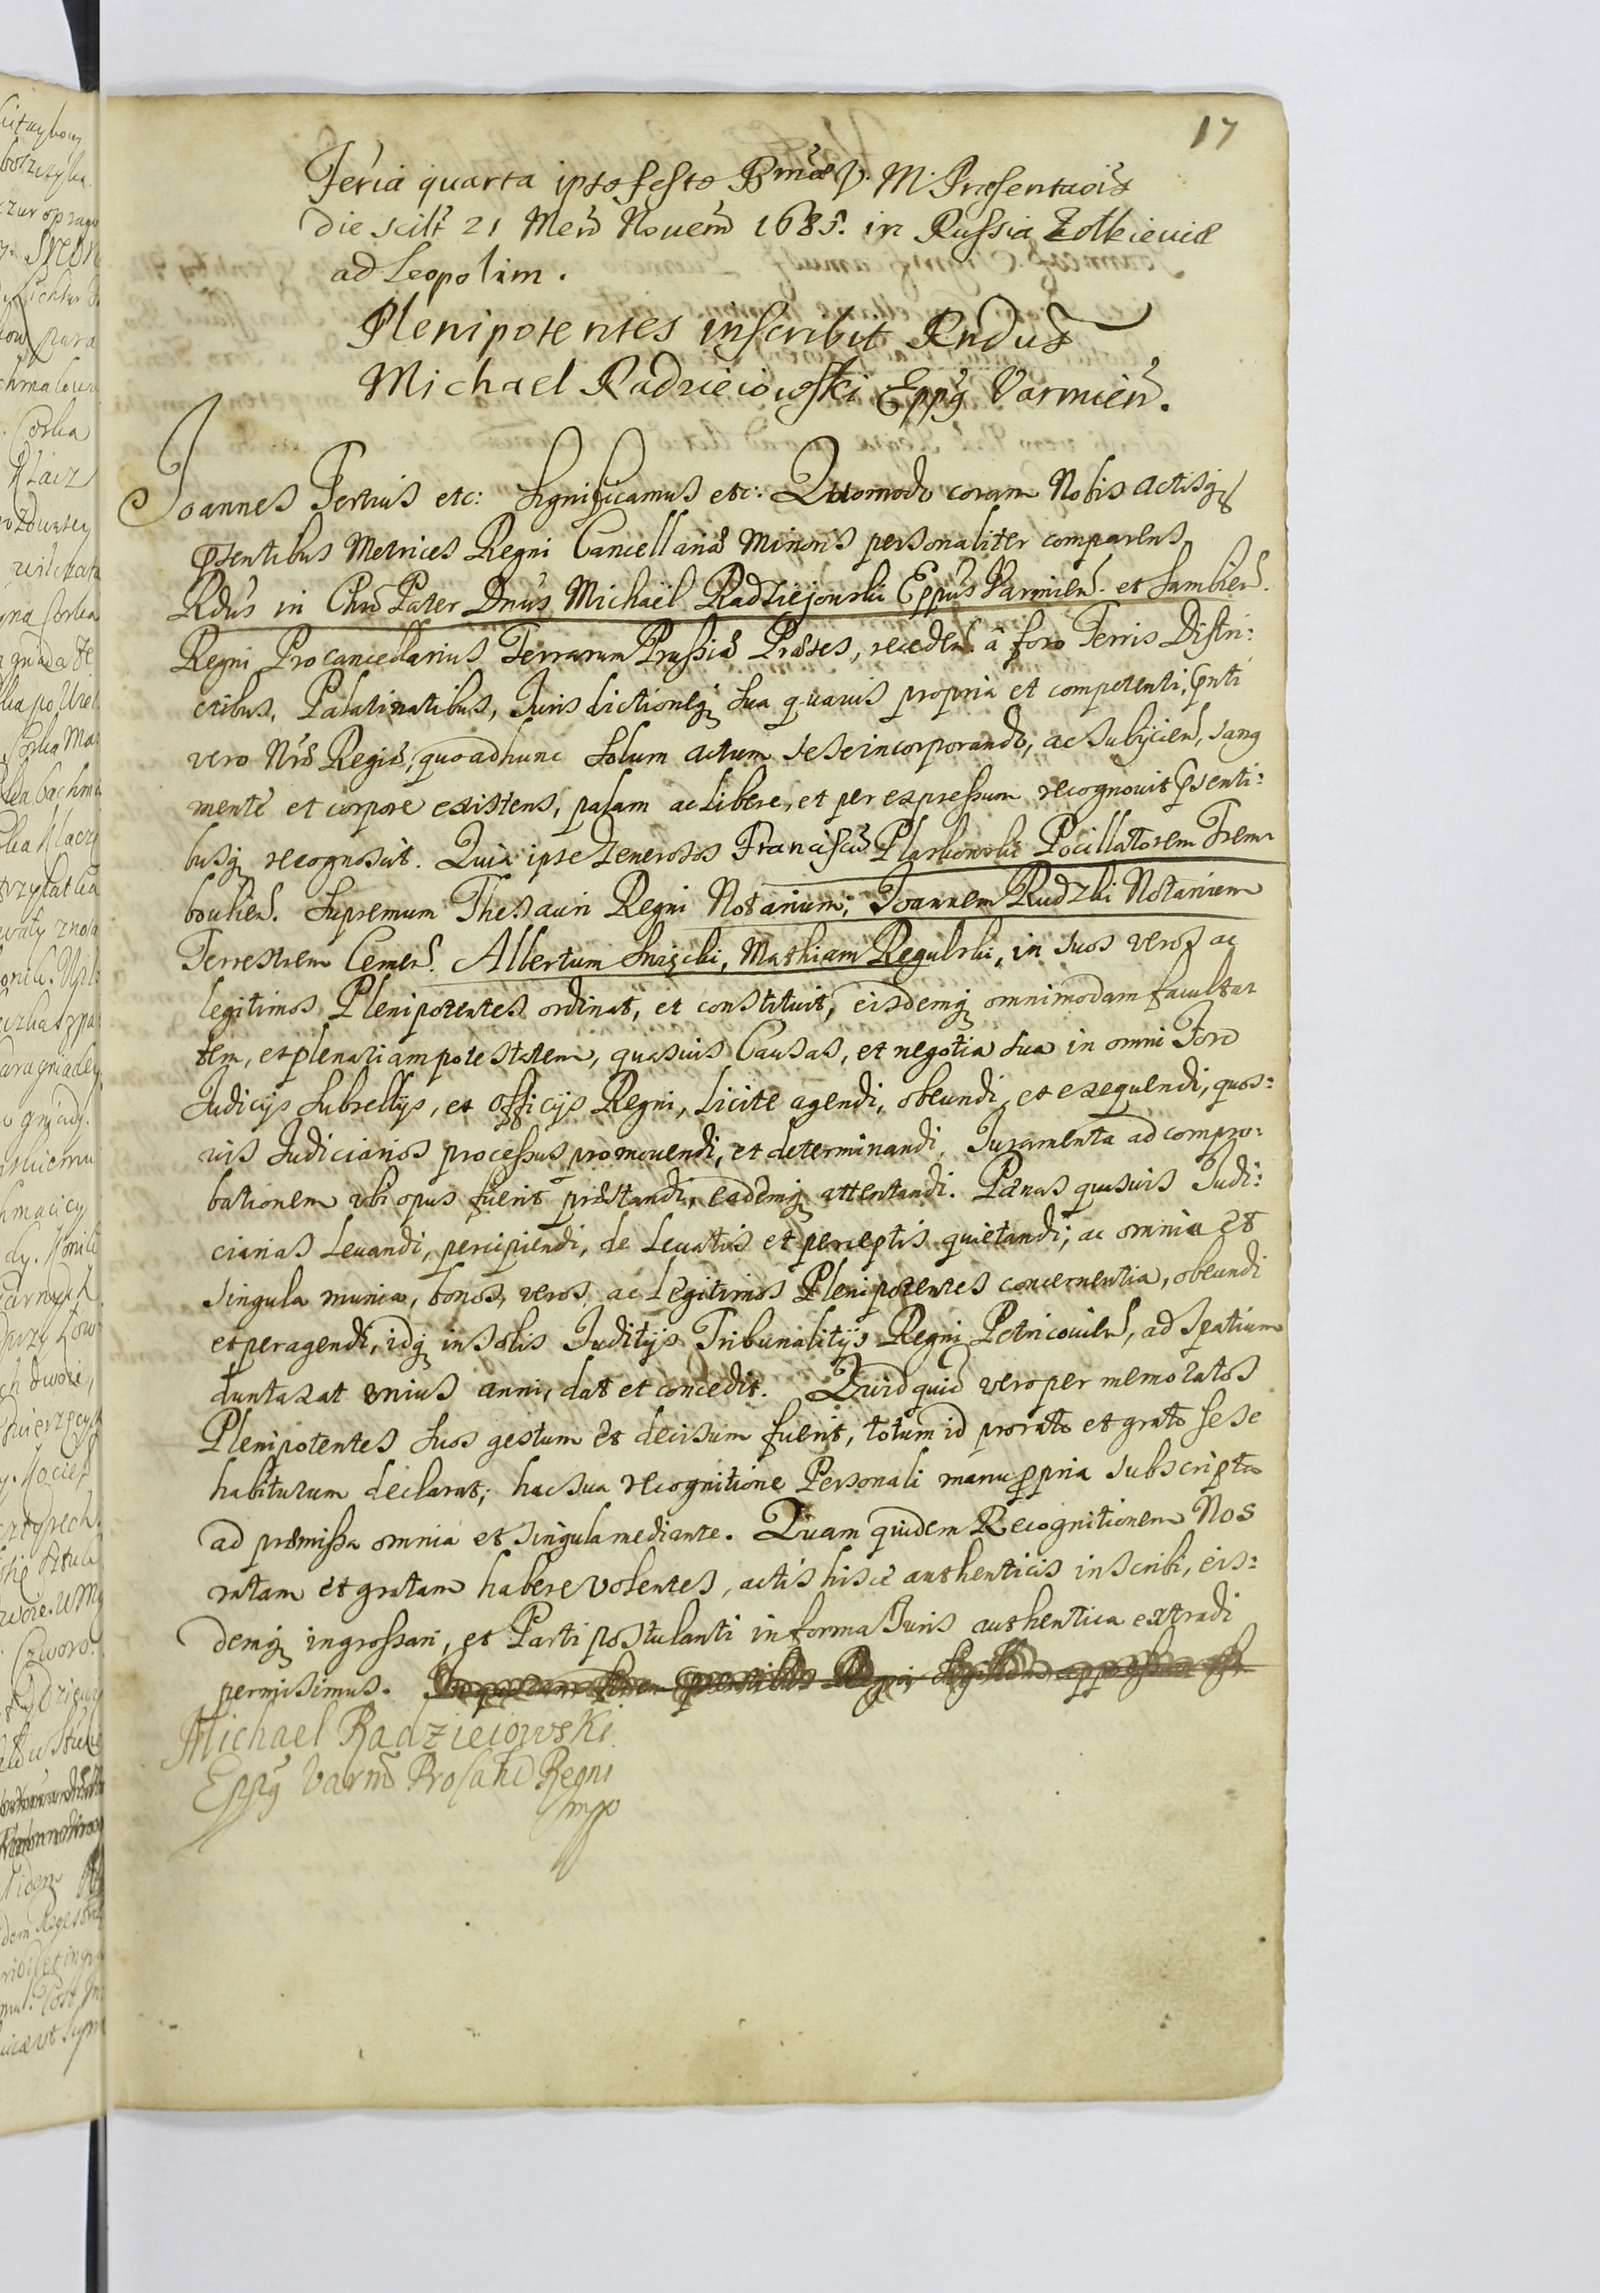 17
Feria quarta ipso festo Bmæ V. M. Præsentaõis
Die scilt 21 Men̄ Novem̄ 1685. in Russia Zolkieviæ
ad Leopolim.
Plenipotentes inscribit Rndus
Michael Radzieiowski Eppũs Varmien̄.
Joannes Tertius etc: Significamus etc: Quomodo coram Nobis actisq̨
p̃sentibus Metrices Regni Cancellariæ Minoris personaliter comparens
Rdũs in Chrõ Pater Dnũs Michaël Radziejowski Eppũs Varmien̄. et Sambien̄.
Regni Procancellarius Terrarum Prussiæ Præses, receden̄. à foro Terris Distri:
ctibus, Palatinatibus, Jurisdictioneq̨ sua quavis propria et competenti, p̃nti
vero Nræ Regiæ, quoad hunc solum actum sese incorporando, ac subijcien̄, sanq
mente et corpore existens, palam ac libere, et per expressum recognovit p̃senti:
busq̨ recognoscit. Quia ipse Generosos Franciscũ Plaskowski Pocillatorem Trem
boulien̄. Supremum Thesauri Regni Notarium; Joannem Rudzki Notarium
Terrestrem Cernen̄. Albertum Snięcki, Mathiam Regulski, in suos veros ac
legitimos Plenipotentes ordinat, et constituit, eisdemq̨ omnimodam facultat
tem, et plenariam potestatem, quasvis Causas, et negotia sua in omni Foro
Judicijs Subsellijs, et officijs Regni, licite agendi, obeundi, et exequendi, quos:
vis Judiciarios processus promovendi, et determinandi. Juramenta ad compro:
bationem ubi opus fuerit præstandi, eademq̨ attentandi. Pænas quasvis Judi:
ciarias Levandi, percipiendi, de Levatis et perceptis quietandi; ac omnia et
singula munia, bonos, veros, ac Legitimos Plenipotentes concernentia, obeundi
et peragendi, idq̨ in solis Juditijs Tribunalitijs Regni Petricovien̄, ad spatium
duntaxat unius anni, dat et concedit. Quidquid vero per memoratos
Plenipotentes suos gestum et decisum fuerit, totum id pro rato et grato sese
habiturum declarat; hac sua recognitione Personali manu p̃pria subscripta
ad præmissa omnia et singula mediante. Quam quidem Recognitionem Nos
ratam et gratam habere volentes, actis hisce authenticis inscribi, eis:
demq̨ ingrossari, et Parti postulanti in forma Juris authentica extradi
permisimus.
Michael Radzieiowski
Eppũs Varm̄ Regni
mpp